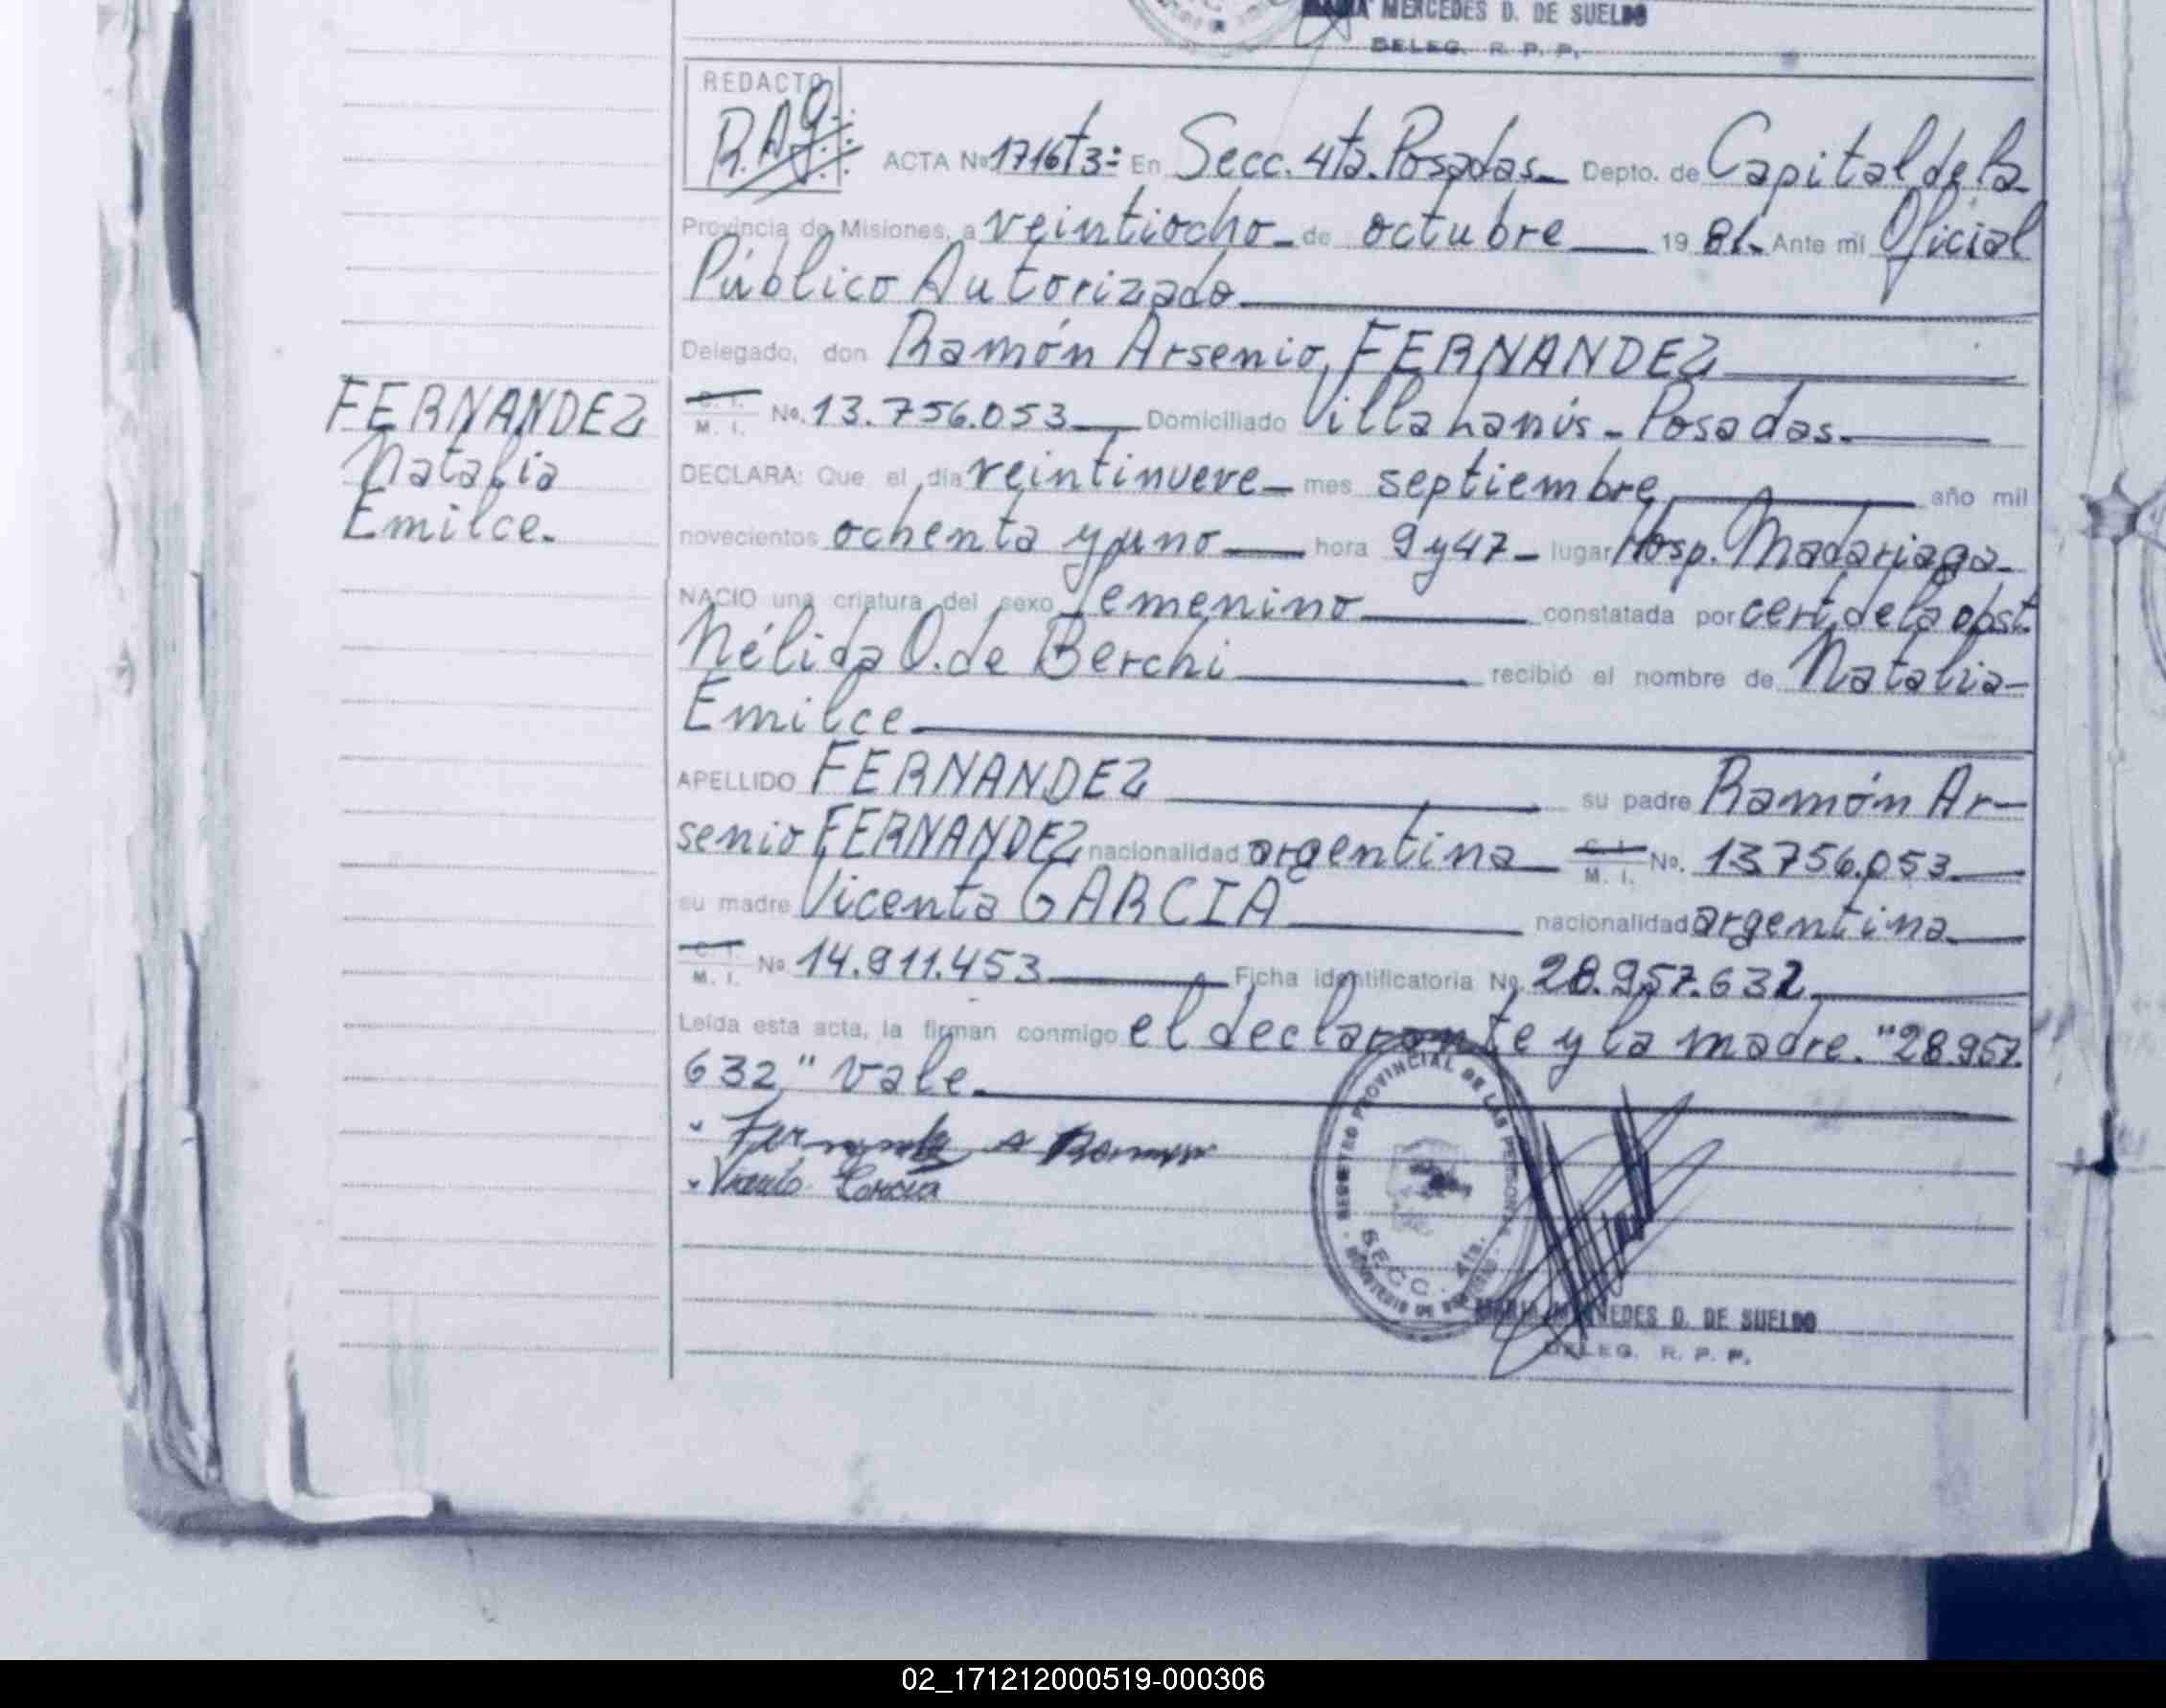 MARIA MERCEDES D. DE SUELDO
DELEG. R. P. P.
REDACTO
R.A.G.
ACTA No 1716T3= En Secc. 4ta. Posadas Depto. de Capital de la
Provincia de Misiones, a veintiocho de octubre 19 81. Ante mi Oficial
Público Autorizado
Delegado, don Ramón Arsenio, FERNANDEZ
FERNANDEZ
Natalia
Emilce.
C. I.
M. I. No. 13.756.053 Domiciliado Villa Lanús - Posadas.
DECLARA: Que el día veintinueve mes septiembre año mil
novecientos ochenta y uno hora 9 y 47 lugar Hosp. Madariaga
NACIO una criatura del sexo femenino constatada por cert. de la obst.
Nélida O. de Berchi recibió el nombre de Natalia
Emilce
APELLIDO FERNANDEZ su padre Ramón Ar-
senio FERNANDEZ nacionalidad argentina C. I. M. I. No. 13.756.053
su madre Vicenta GARCIA nacionalidad argentina
C. I.
M. I. No 14.911.453 Ficha identificatoria No. 28.957.632
Leída esta acta, la firman conmigo el declarante y la madre. "28.957.
632" vale.
REGISTRO PROVINCIAL DE LAS PERSONAS
SECC. 4ta.
MARIA MERCEDES D. DE SUELDO
DELEG. R. P. P.
02_171212000519-000306